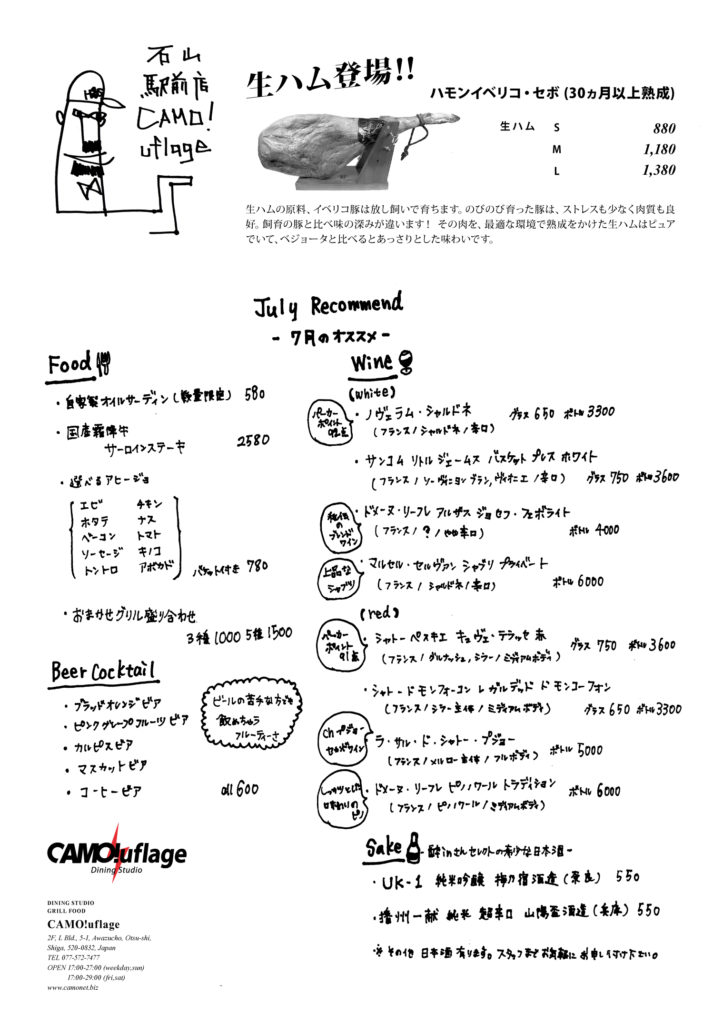 石山
駅前店
CAMO!
uflage
生ハム登場!!
ハモンイベリコ・セボ (30ヵ月以上熟成)
生ハム S 880
M 1,180
L 1,380
生ハムの原料、イベリコ豚は放し飼いで育ちます。のびのび育った豚は、ストレスも少なく肉質も良
好。飼育の豚と比べ味の深みが違います! その肉を、最適な環境で熟成をかけた生ハムはピュア
でいて、ベジョータと比べるとあっさりとした味わいです。
July Recommend
- 7月のオススメ -
Food
・自家製オイルサーディン (数量限定) 580
・国産霜降牛
サーロインステーキ 2580
・選べるアヒージョ
エビ チキン
ホタテ ナス
ベーコン トマト
ソーセージ キノコ
トントロ アボカド
バケット付き 780
・おまかせグリル盛り合わせ
3種1000 5種1500
Beer Cocktail
・ブラッドオレンジビア
・ピンクグレープフルーツビア
・カルピスビア
・マスカットビア
・コーヒービア all 600
ビールの苦手な方でも
飲めちゃう
フルーティーさ
Wine
(white)
パーカー
ポイント
92点
・ノヴェラム・シャルドネ グラス 650 ボトル 3300
(フランス / シャルドネ / 辛口)
・サンコム リトル ジェームス バスケット プレス ホワイト
(フランス / ソーヴィニヨン ブラン, ヴィオニエ / 辛口) グラス 750 ボトル 3600
秘伝
の
ブレンド
ワイン
・ドメーヌ・リーフレ アルザス ジョセフ・フェボライト
(フランス / ? / やや辛口) ボトル 4000
上品な
シャブリ
・マルセル・セルヴァン シャブリ プライベート
(フランス / シャルドネ / 辛口) ボトル 6000
(red)
パーカー
ポイント
91点
・シャトー ペスキエ キュヴェ・テラッセ 赤 グラス 750 ボトル 3600
(フランス / グルナッシュ, シラー / ミディアムボディ)
・シャトー ド モンフォーコン レ グルデッド ド モンコーフォン
(フランス / シラー主体 / ミディアムボディ) グラス 650 ボトル 3300
Ch プジョー
セカンドワイン
・ラ・サル・ド・シャトー・プジョー ボトル 5000
(フランス / メルロー主体 / フルボディ)
しっかりとした
味わいの
ピノ
・ドメーヌ・リーフレ ピノノワール トラディション ボトル 6000
(フランス / ピノノワール / ミディアムボディ)
Sake - 酔inさんセレクトの希少な日本酒 -
・UK-1 純米吟醸 梅乃宿酒造 (奈良) 550
・播州一献 純米 超辛口 山陽盃酒造 (兵庫) 550
※その他 日本酒 有ります。スタッフまでお気軽に お申し付け下さい。
CAMO!uflage
Dining Studio
DINING STUDIO
GRILL FOOD
CAMO!uflage
2F, L Bld., 5-1, Awazucho, Otsu-shi,
Shiga, 520-0832, Japan
TEL 077-572-7477
OPEN 17:00-27:00 (weekday,sun)
17:00-29:00 (fri,sat)
www.camonet.biz